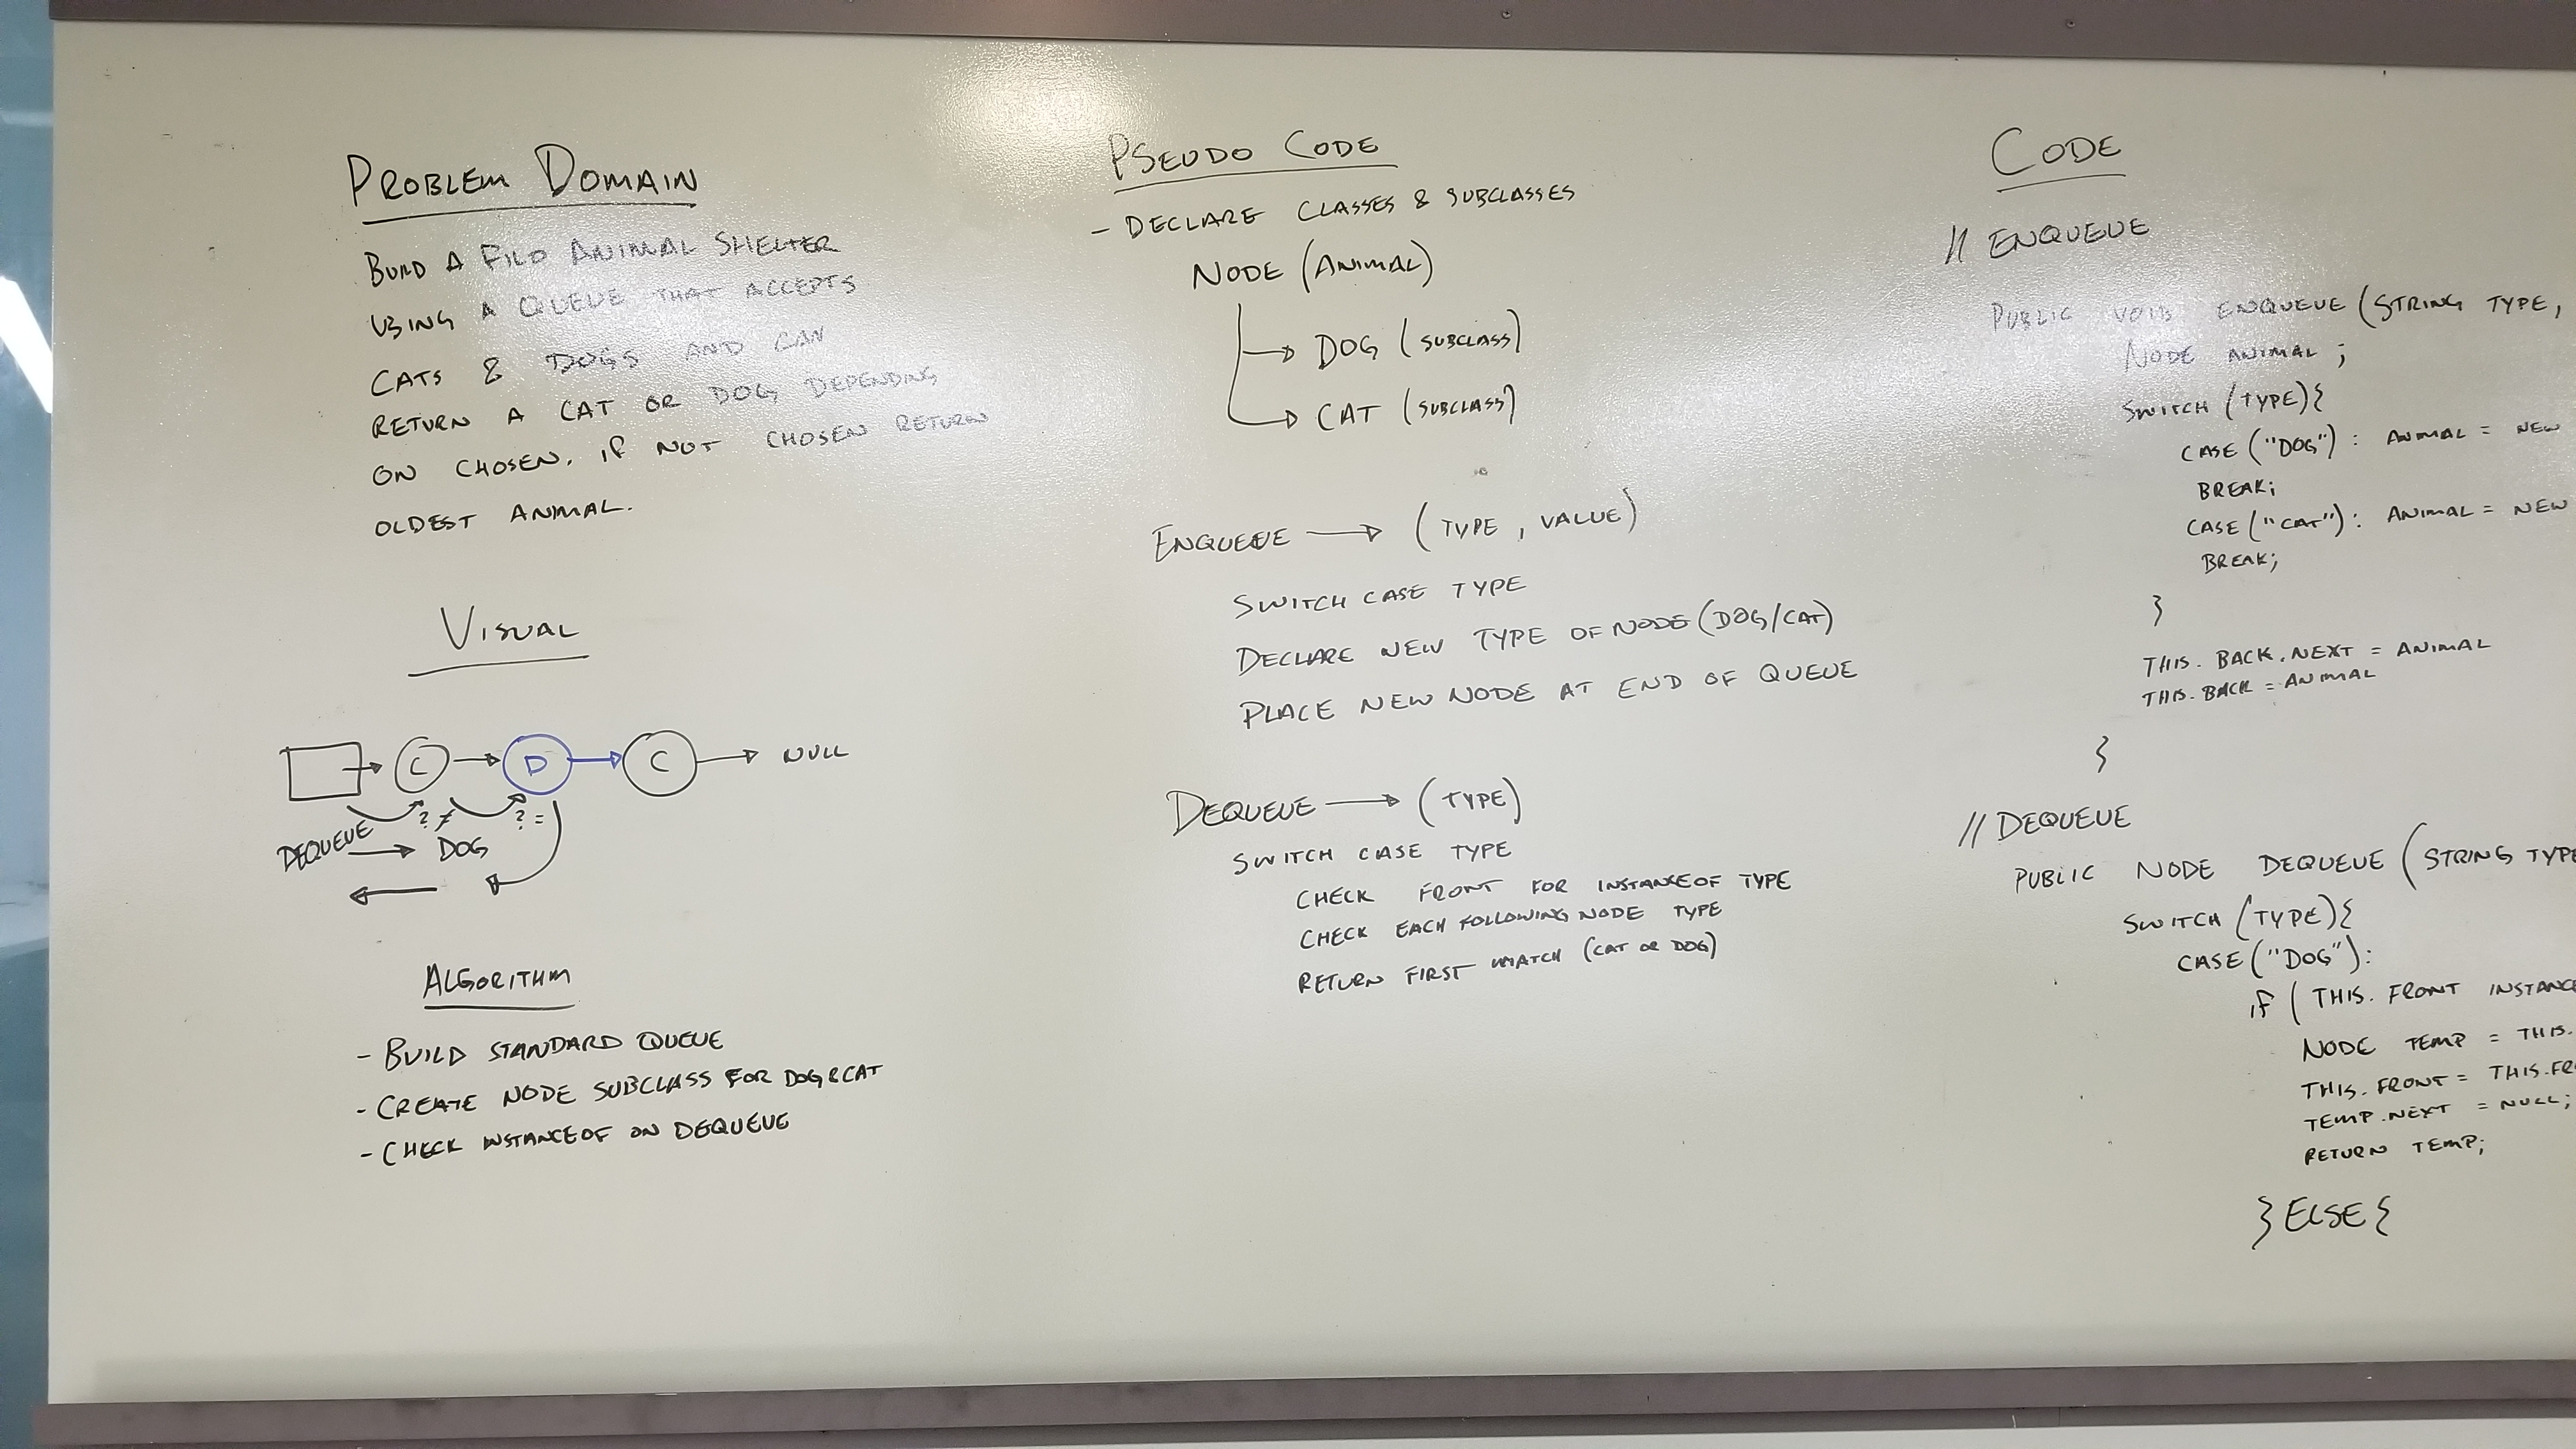 PROBLEM DOMAIN
BUILD A FILO ANIMAL SHELTER
USING A QUEUE THAT ACCEPTS
CATS & DOGS AND CAN
RETURN A CAT OR DOG DEPENDING
ON CHOSEN. IF NOT CHOSEN RETURN
OLDEST ANIMAL.
VISUAL
C D C NULL
? ≠ ? =
DEQUEUE DOG
ALGORITHM
- BUILD STANDARD QUEUE
- CREATE NODE SUBCLASS FOR DOG & CAT
- CHECK INSTANCEOF ON DEQUEUE
PSEUDO CODE
- DECLARE CLASSES & SUBCLASSES
NODE (ANIMAL)
→ DOG (SUBCLASS)
→ CAT (SUBCLASS)
ENQUEUE → (TYPE, VALUE)
SWITCH CASE TYPE
DECLARE NEW TYPE OF NODE (DOG/CAT)
PLACE NEW NODE AT END OF QUEUE
DEQUEUE → (TYPE)
SWITCH CASE TYPE
CHECK FRONT FOR INSTANCEOF TYPE
CHECK EACH FOLLOWING NODE TYPE
RETURN FIRST MATCH (CAT OR DOG)
CODE
// ENQUEUE
PUBLIC VOID ENQUEUE (STRING TYPE,
NODE ANIMAL ;
SWITCH (TYPE){
CASE ("DOG") : ANIMAL = NEW
BREAK;
CASE ("CAT") : ANIMAL = NEW
BREAK;
}
THIS.BACK.NEXT = ANIMAL
THIS.BACK = ANIMAL
}
// DEQUEUE
PUBLIC NODE DEQUEUE (STRING TYPE
SWITCH (TYPE){
CASE ("DOG"):
IF ( THIS.FRONT INSTANCE
NODE TEMP = THIS.
THIS.FRONT = THIS.FR
TEMP.NEXT = NULL;
RETURN TEMP;
} ELSE {